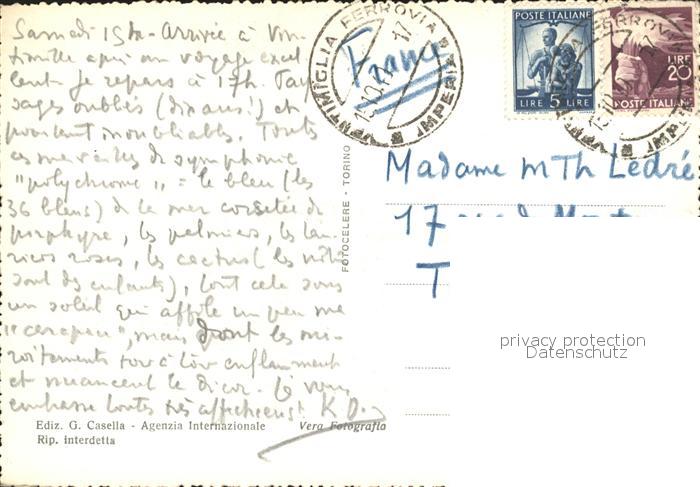 Samedi 15h - Arrivée à Vin-
timille après un voyage excel
lent. Je repars à 17h. Pay
sages oubliés (dix ans!) et
pourtant inoubliables. Toutes
ces merveilles de symphonie
"polychrome" = le bleu (les
36 bleus) de la mer corsetée de
porphyre, les palmiers, les lau-
riers roses, les cactus (les
sont des enfants), tout cela sous
un soleil qui affole un peu ma
mais dont les mi-
roitements tour à tour enflamment
et nuancent le décor. Je vous
embrasse toutes très affectueus! K D.
Ediz. G. Casella - Agenzia Internazionale
Rip. interdetta
Vera Fotografia
FOTOCELERE - TORINO
VENTIMIGLIA FERROVIA
IMPERIA
France
POSTE ITALIANE
LIRE 5 LIRE
LIRE 20
POSTE ITALIANE
Madame M Th Ledré
17
T
privacy protection
Datenschutz